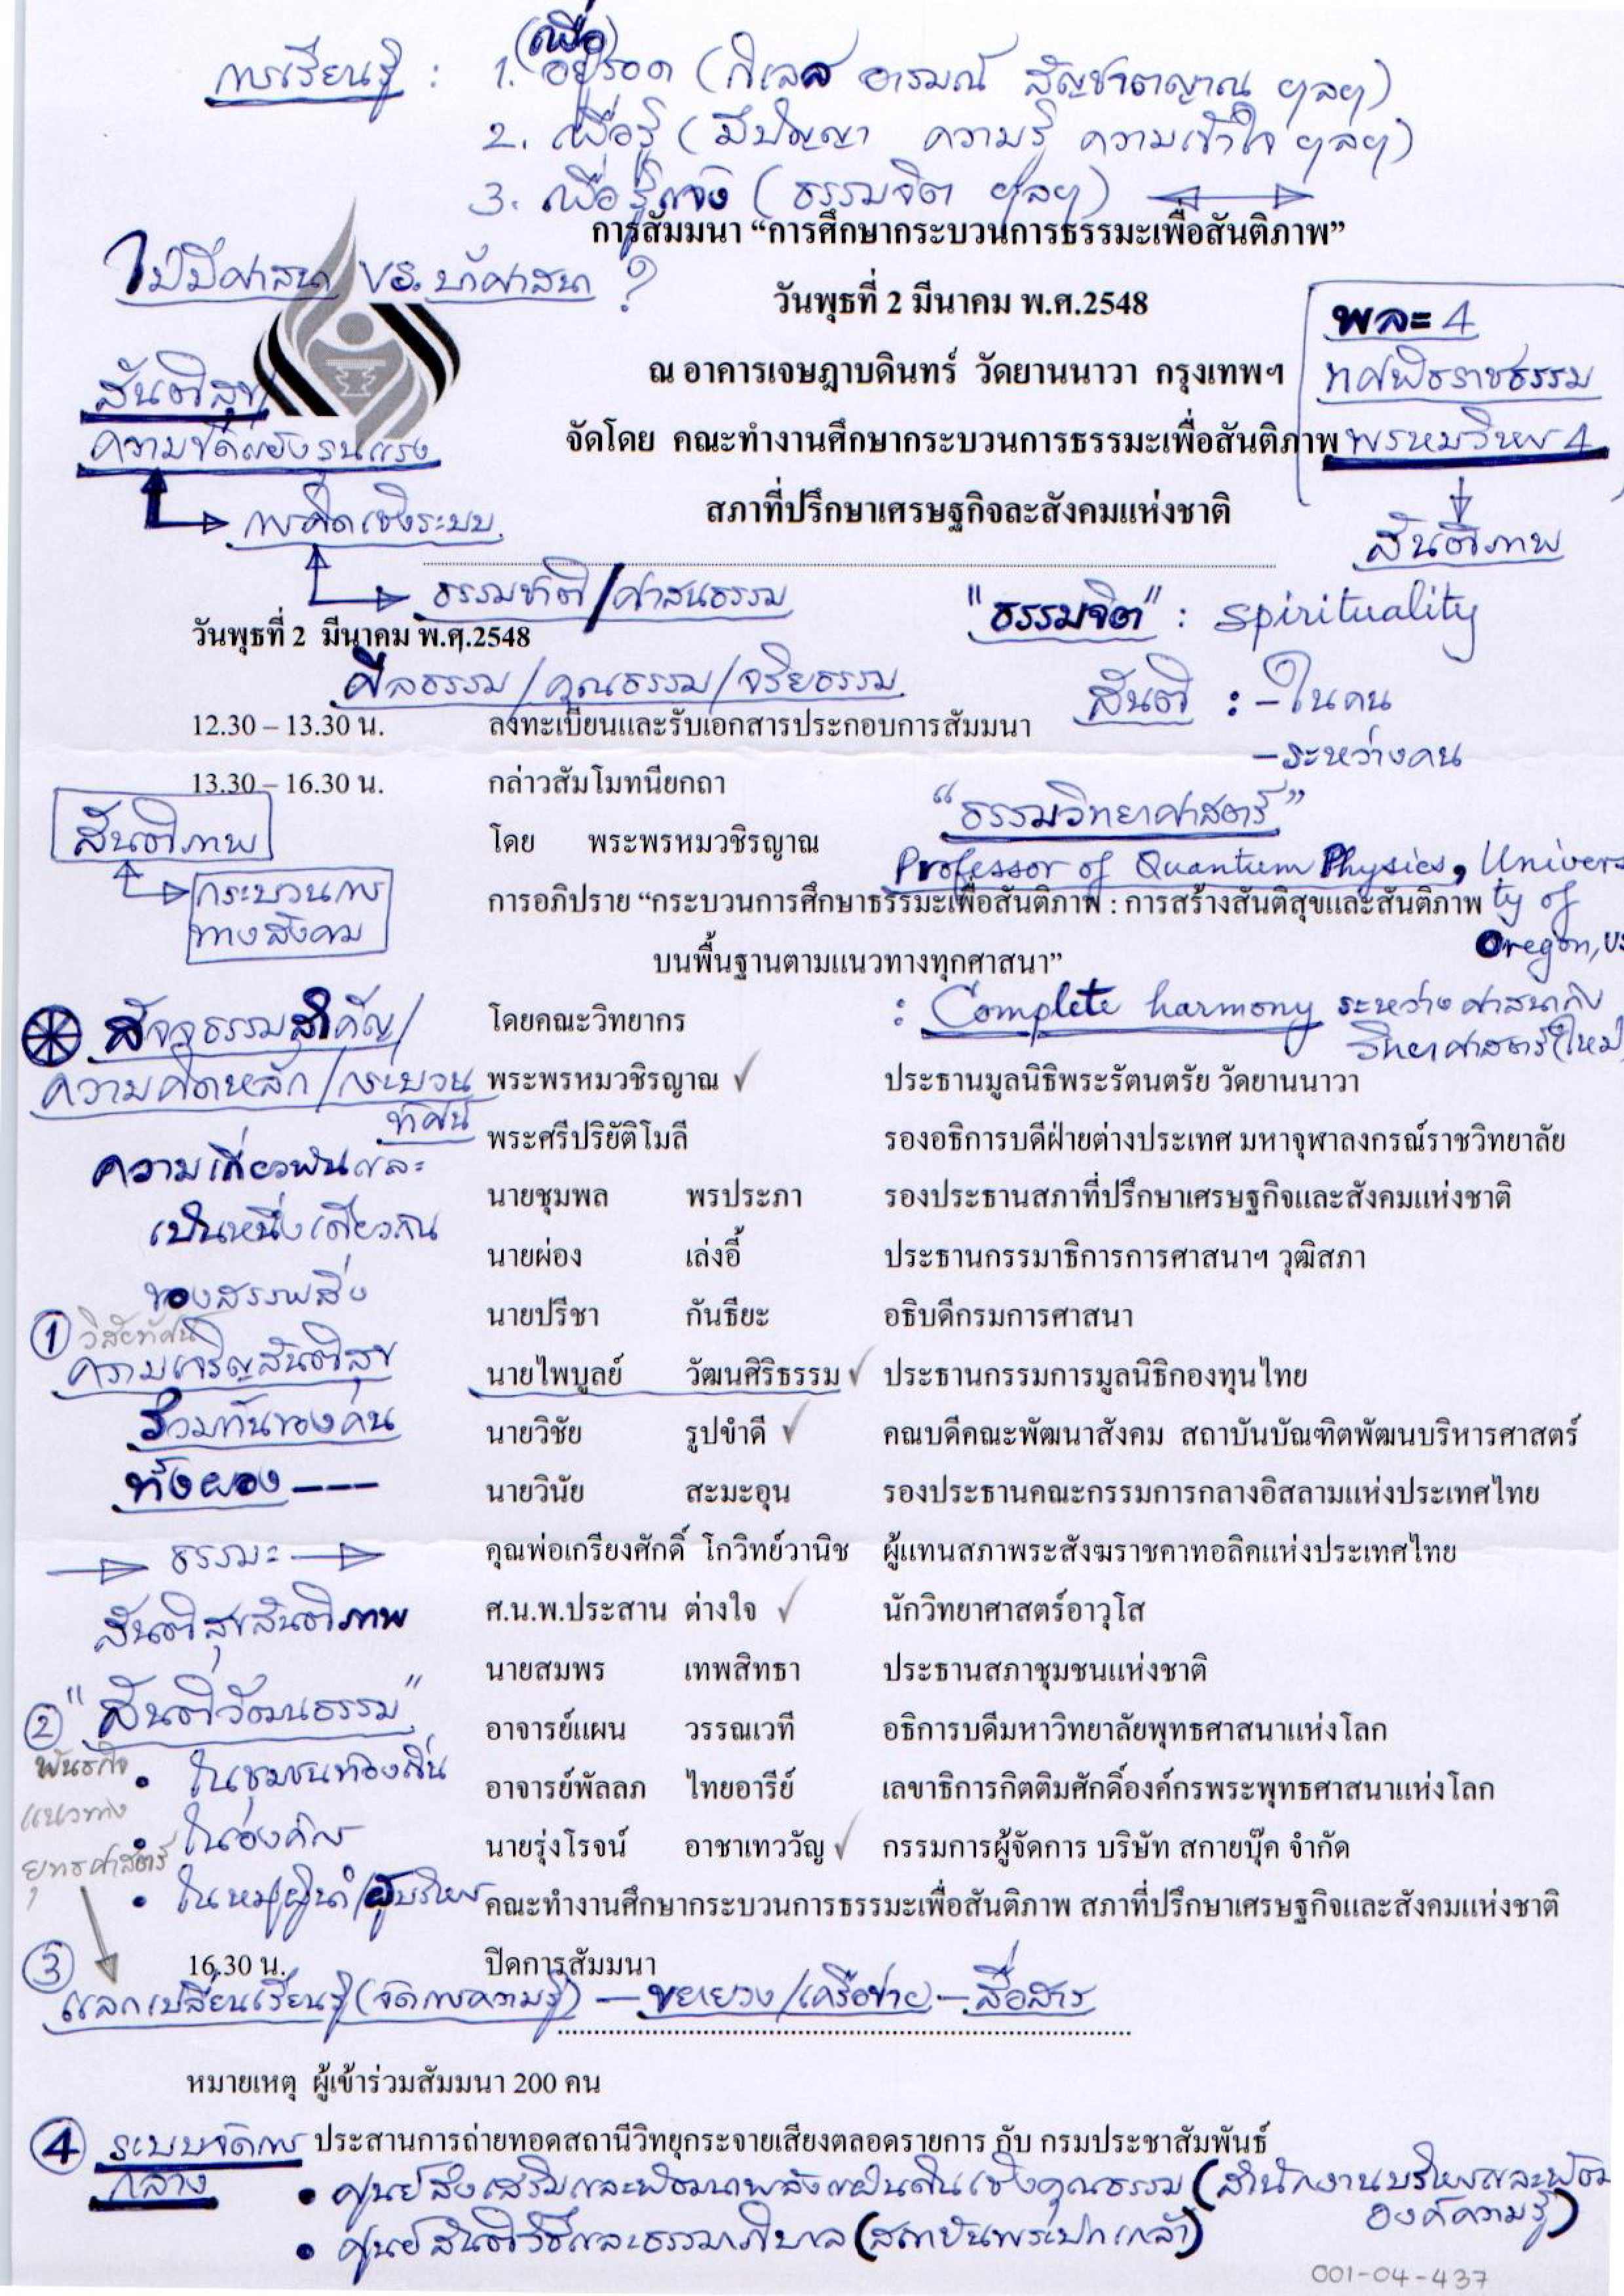 การเรียนรู้ : 1. (เพื่อ) อยู่รอด (กิเลส อารมณ์ สัญชาตญาณ ฯลฯ)
2. เพื่อรู้ (มีปัญญา ความรู้ ความเข้าใจ ฯลฯ)
3. เพื่อรู้แจ้ง (ธรรมจิต ฯลฯ)
การสัมมนา “การศึกษากระบวนการธรรมะเพื่อสันติภาพ”
ไม่มีศาสนา vs. บ้าศาสนา ?
วันพุธที่ 2 มีนาคม พ.ศ.2548
พละ 4
ณ อาคารเจษฎาบดินทร์ วัดยานนาวา กรุงเทพฯ
ทศพิธราชธรรม
สันติสุข/
ความขัดแย้งรุนแรง
จัดโดย คณะทำงานศึกษากระบวนการธรรมะเพื่อสันติภาพ
พรหมวิหาร 4
การคิดเชิงระบบ
สภาที่ปรึกษาเศรษฐกิจละสังคมแห่งชาติ
สันติภาพ
ธรรมชาติ/ศาสนธรรม
"ธรรมจิต" : spirituality
วันพุธที่ 2 มีนาคม พ.ศ.2548
ศีลธรรม/คุณธรรม/จริยธรรม
สันติ : - ในคน
- ระหว่างคน
12.30 – 13.30 น. ลงทะเบียนและรับเอกสารประกอบการสัมมนา
13.30 – 16.30 น. กล่าวสัมโมทนียกถา
สันติภาพ
“ธรรมวิทยาศาสตร์”
โดย พระพรหมวชิรญาณ
Professor of Quantum Physics, University of Oregon, US
กระบวนการ
ทางสังคม
การอภิปราย “กระบวนการศึกษาธรรมะเพื่อสันติภาพ : การสร้างสันติสุขและสันติภาพ
บนพื้นฐานตามแนวทางทุกศาสนา”
: Complete harmony ระหว่างศาสนากับ
วิทยาศาสตร์ใหม่
สัจจธรรมสำคัญ/
ความคิดหลัก/กระบวน
ทัศน์
โดยคณะวิทยากร
พระพรหมวชิรญาณ ✓ ประธานมูลนิธิพระรัตนตรัย วัดยานนาวา
พระศรีปริยัติโมลี รองอธิการบดีฝ่ายต่างประเทศ มหาจุฬาลงกรณ์ราชวิทยาลัย
ความเกี่ยวพันและ
เป็นหนึ่งเดียวกัน
ของสรรพสิ่ง
นายชุมพล พรประภา รองประธานสภาที่ปรึกษาเศรษฐกิจและสังคมแห่งชาติ
นายผ่อง เล่งอี้ ประธานกรรมาธิการการศาสนาฯ วุฒิสภา
นายปรีชา กันธิยะ อธิบดีกรมการศาสนา
① วิสัยทัศน์
ความเจริญสันติสุข
ร่วมกันของคน
ทั้งผอง ---
นายไพบูลย์ วัฒนศิริธรรม ✓ ประธานกรรมการมูลนิธิกองทุนไทย
นายวิชัย รูปขำดี ✓ คณบดีคณะพัฒนาสังคม สถาบันบัณฑิตพัฒนบริหารศาสตร์
นายวินัย สะมะอุน รองประธานคณะกรรมการกลางอิสลามแห่งประเทศไทย
ธรรมะ
คุณพ่อเกรียงศักดิ์ โกวิทย์วานิช ผู้แทนสภาพระสังฆราชคาทอลิคแห่งประเทศไทย
สันติสุขสันติภาพ
ศ.น.พ.ประสาน ต่างใจ ✓ นักวิทยาศาสตร์อาวุโส
นายสมพร เทพสิทธา ประธานสภาชุมชนแห่งชาติ
② "สันติวัฒนธรรม"
อาจารย์แผน วรรณเวที อธิการบดีมหาวิทยาลัยพุทธศาสนาแห่งโลก
พันธกิจ
แนวทาง
ยุทธศาสตร์
• ในชุมชนท้องถิ่น
• ในองค์กร
• ในหมู่ผู้นำ/ผู้บริหาร
อาจารย์พัลลภ ไทยอารีย์ เลขาธิการกิตติมศักดิ์องค์กรพระพุทธศาสนาแห่งโลก
นายรุ่งโรจน์ อาชาเทววัญ ✓ กรรมการผู้จัดการ บริษัท สกายบุ๊ค จำกัด
คณะทำงานศึกษากระบวนการธรรมะเพื่อสันติภาพ สภาที่ปรึกษาเศรษฐกิจและสังคมแห่งชาติ
16.30 น. ปิดการสัมมนา
③ แลกเปลี่ยนเรียนรู้ (จัดการความรู้) – ขยายวง/เครือข่าย – สื่อสาร
หมายเหตุ ผู้เข้าร่วมสัมมนา 200 คน
ประสานการถ่ายทอดสถานีวิทยุกระจายเสียงตลอดรายการ กับ กรมประชาสัมพันธ์
④ ระบบจัดการ
กลาง
• ศูนย์ส่งเสริมและพัฒนาพลังแผ่นดินเชิงคุณธรรม (สำนักงานบริหารและพัฒนา
องค์ความรู้)
• ศูนย์สันติวิธีและธรรมาภิบาล (สถาบันพระปกเกล้า)
001-04-437